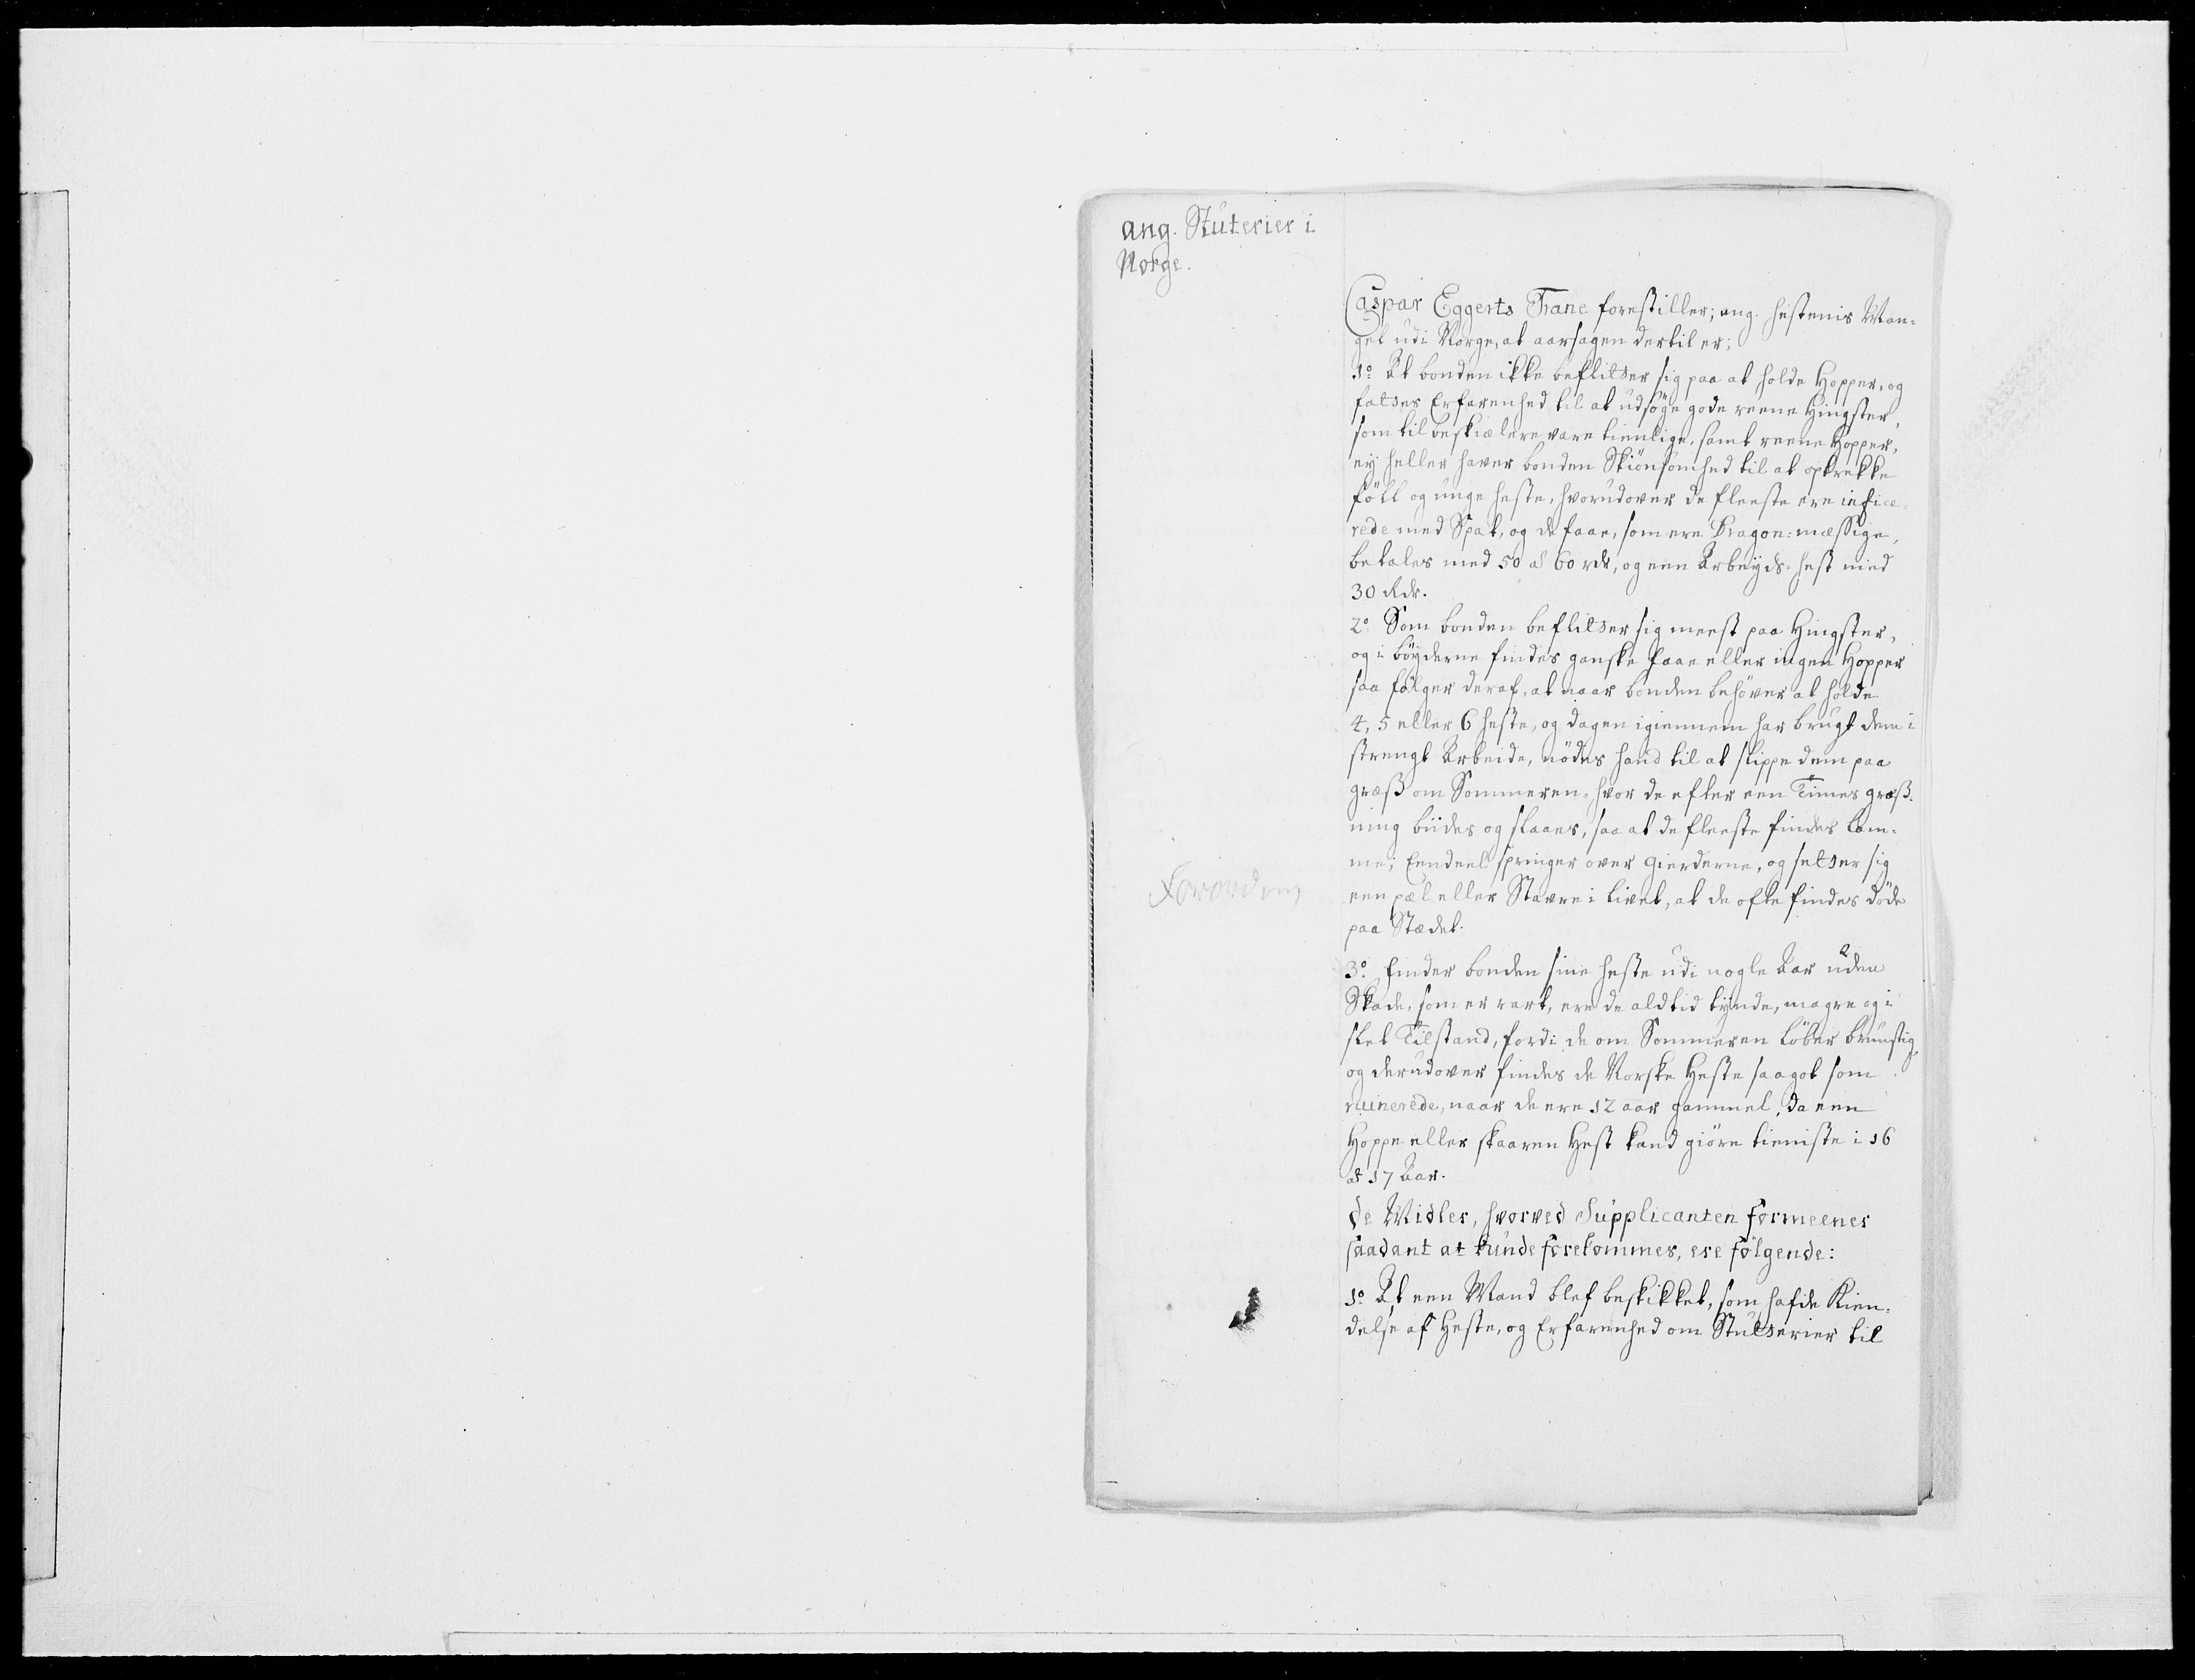 ang. Stuterier i
Norge.
Caspar Eggerts Trane forestiller; ang. hestenis Man-
gel udi Norge, at aarsagen dertil er;
1º At bonden ikke beflitser sig paa at holde Hopper, og
fatses Erfarenhed til at udsøge gode reene Hingster,
som til beskiælere vare tienlige, samt reene Hopper,
ey heller haver bonden Skiönsomhed til at optrekke
föll og unge heste, hvorudover de fleeste ere infice-
rede med Spat, og de faae, som ere Dragon-mæssige,
betales med 50 a 60 rdr, og een Arbeyds-hest med
30 Rdr.
2º Som bonden beflitser sig meest paa Hingster,
og i böyderne findes ganske faae eller ingen Hopper
saa fölger deraf, at naar bonden behöver at holde
4, 5 eller 6 heste, og dagen igiennem har brugt dem i
strengt Arbeide, nödes hand til at slippe dem paa
græs om Sommeren, hvor de efter een Times græs-
ning biides og slaaes, saa at de fleeste findes lam-
me; Eendeel springer over gierderne, og setser sig
een pæl eller Stavre i livet, at de ofte findes döde
paa Stædet.
Forordning
3º finder bonden sine heste udi nogle Aar uden
Skade, som er rart, ere de altid tynde, magre og i
slet Tilstand, fordi de om Sommeren löber brunstig,
og derudover findes de Norske Heste saagot som
ruinerede, naar de ere 12 aar gammel, da een
Hoppe eller skaaren Hest kand giöre tieniste i 16
a 17 Aar.
de Midler, hvorved Supplicanten formeener
saadant at kunde forekommes, ere fölgende:
1º At een Mand blef beskikket, som hafde Kien-
delse af Heste, og Erfarenhed om Stutserier til